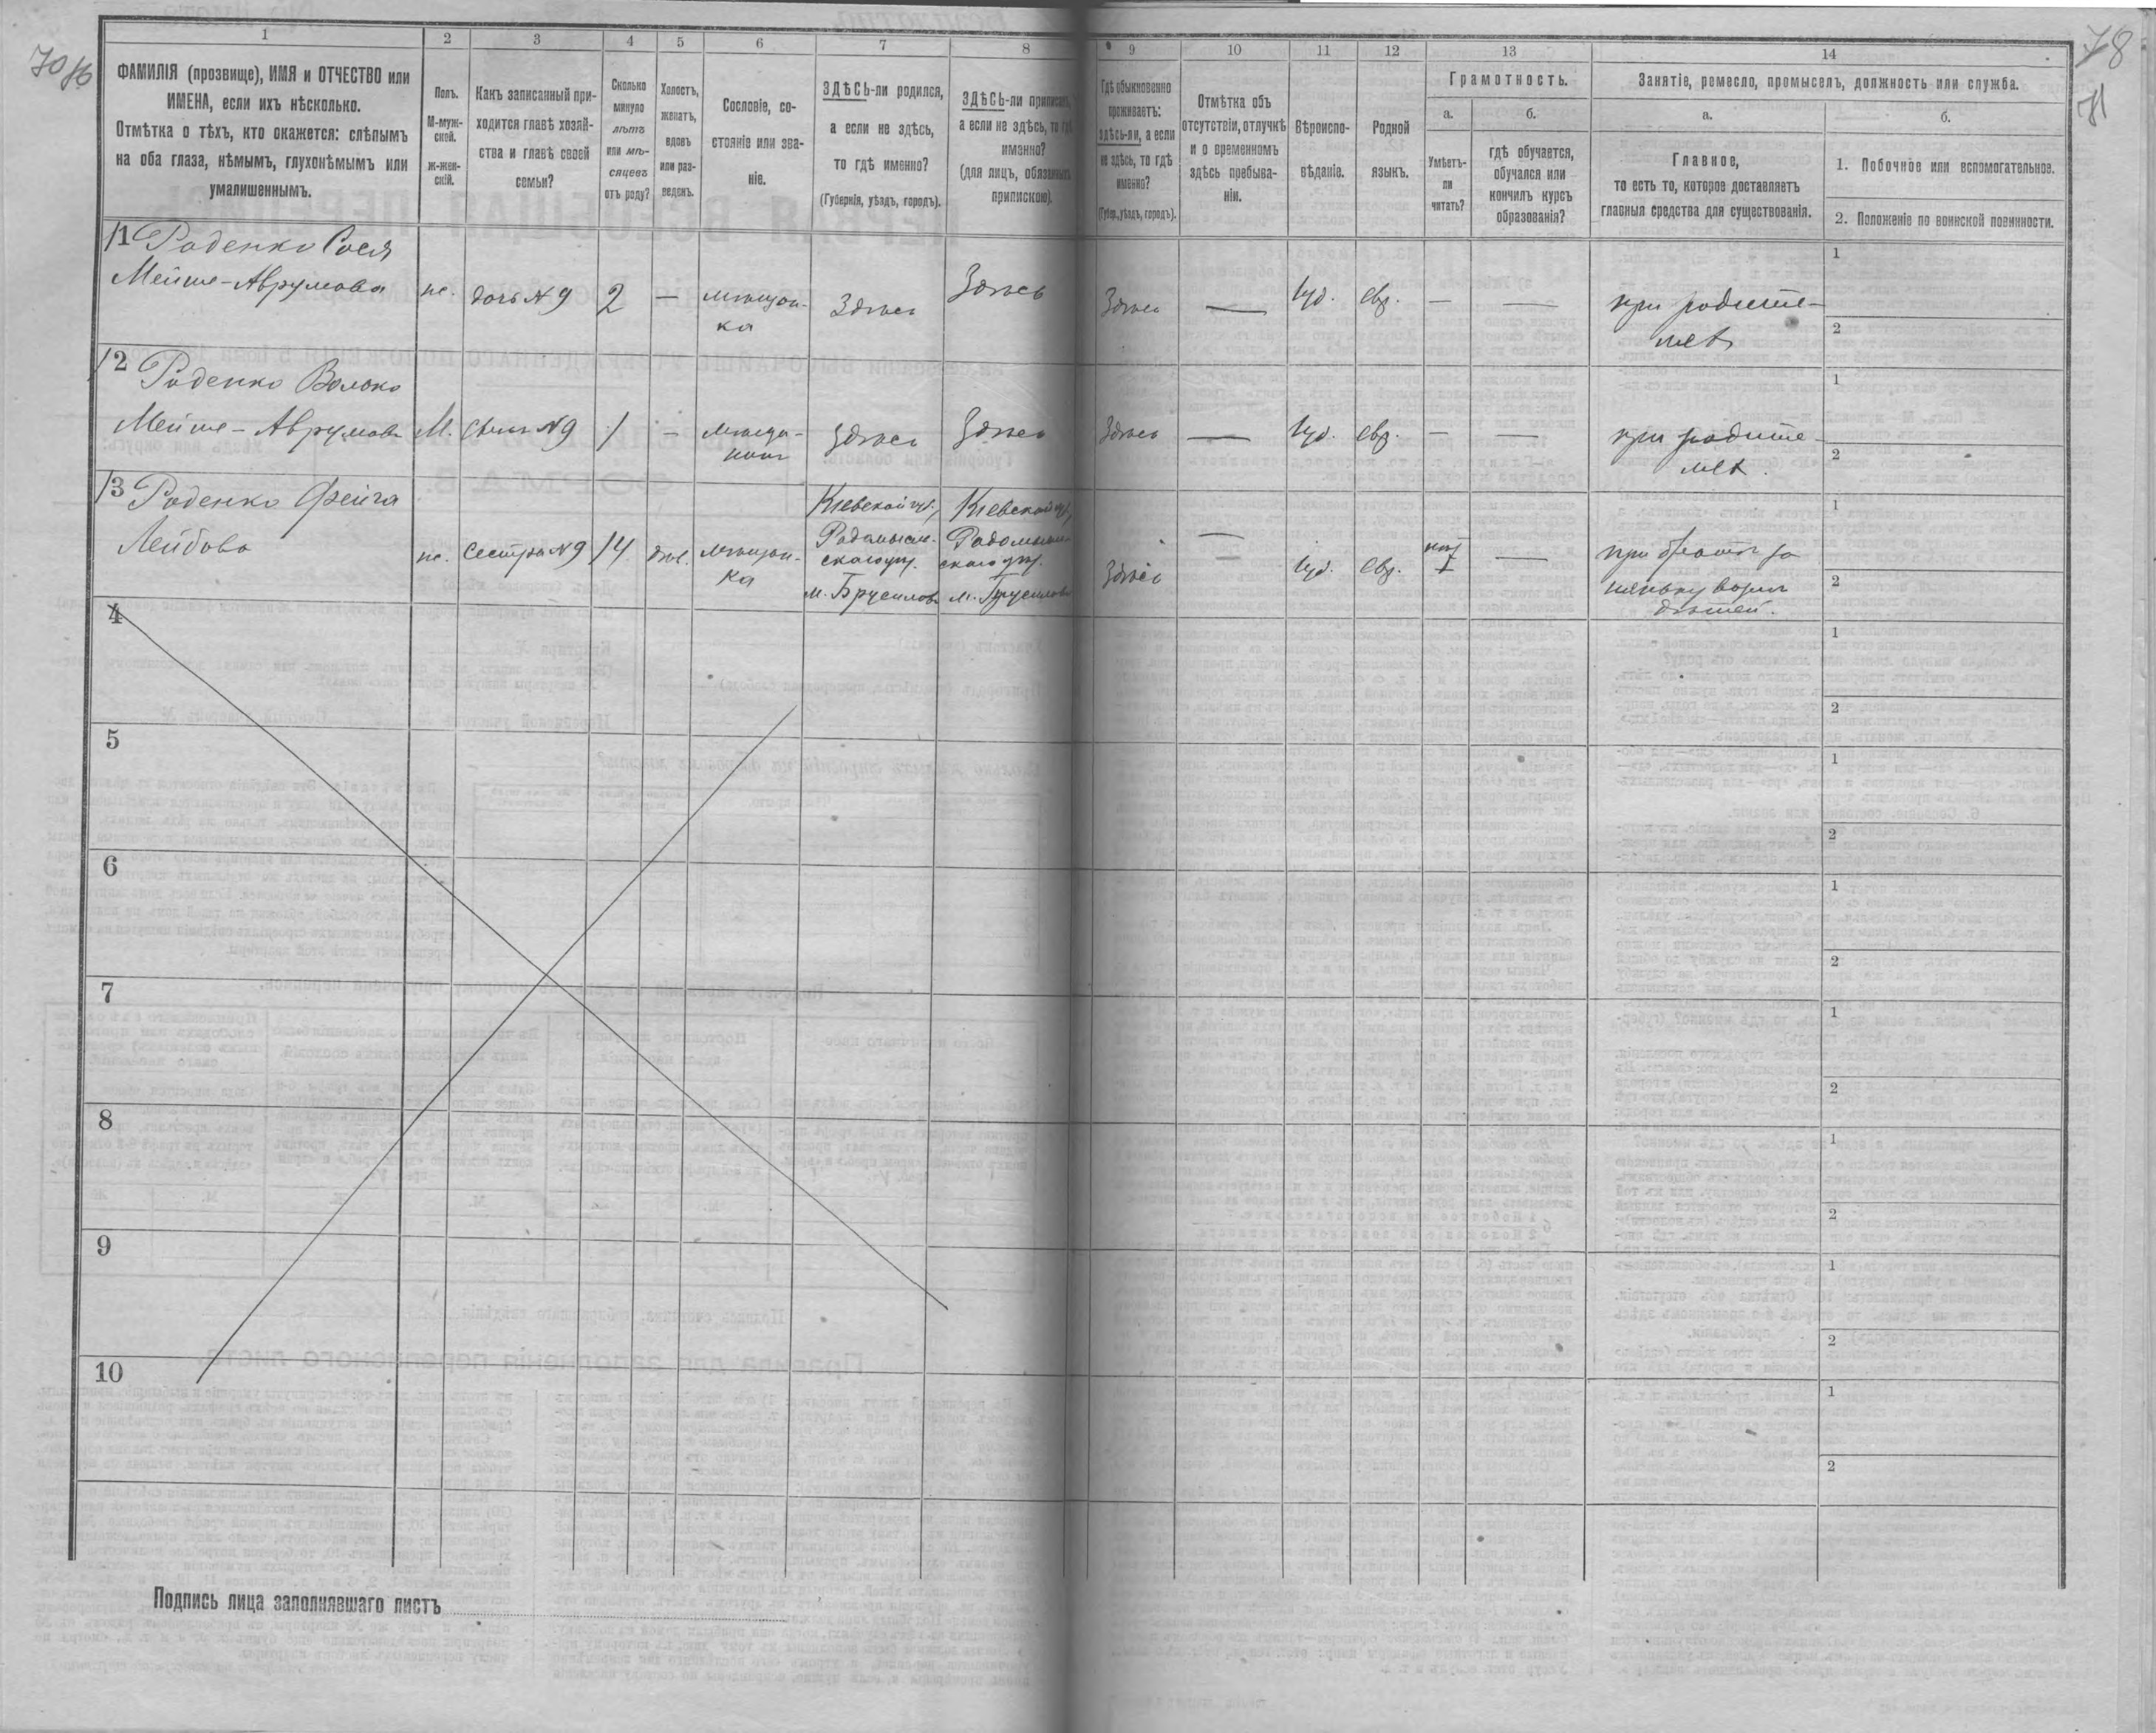 70 об
78
71
1
2
3
4
5
6
7
8
9
10
11
12
13
14
ФАМИЛІЯ (прозвище), ИМЯ и ОТЧЕСТВО или
ИМЕНА, если ихъ нѣсколько.
Отмѣтка о тѣхъ, кто окажется: слѣпымъ
на оба глаза, нѣмымъ, глухонѣмымъ или
умалишеннымъ.
Полъ.
М-муж-
ской.
Ж-жен-
скій.
Какъ записанный при-
ходится главѣ хозяй-
ства и главѣ своей
семьи?
Сколько
минуло
лѣтъ
или мѣ-
сяцевъ
отъ роду?
Холостъ,
женатъ,
вдовъ
или раз-
веденъ.
Сословіе, со-
стояніе или зва-
ніе.
ЗДѢСЬ-ли родился,
а если не здѣсь,
то гдѣ именно?
(Губернія, уѣздъ, городъ).
ЗДѢСЬ-ли приписанъ,
а если не здѣсь, то гдѣ
именно?
(для лицъ, обязанныхъ
припискою).
Гдѣ обыкновенно
проживаетъ:
здѣсь-ли, а если
не здѣсь, то гдѣ
именно?
(Губер., уѣздъ, городъ).
Отмѣтка объ
отсутствіи, отлучкѣ
и о временномъ
здѣсь пребыва-
ніи.
Вѣроиспо-
вѣданіе.
Родной
языкъ.
Грамотность.
а.
б.
Умѣетъ-
ли
читать?
гдѣ обучается,
обучался или
кончилъ курсъ
образованія?
Занятіе, ремесло, промыселъ, должность или служба.
а.
б.
Главное,
то есть то, которое доставляетъ
главныя средства для существованія.
1. Побочное или вспомогательное.
2. Положеніе по воинской повинности.
11 Роденко Сося
Мейше-Аврумова
ж.
дочь N 9
2
—
мѣщан-
ка
Здѣсь
Здѣсь
Здѣсь
—
Іуд.
евр.
—
—
при родите-
лѣ
1
2
12 Роденко Волько
Мейше-Аврумовъ
М.
сынъ N 9
1
—
мѣща-
нинъ
Здѣсь
Здѣсь
Здѣсь
—
Іуд.
евр.
—
—
при родите-
лѣ.
1
2
13 Роденко Фейга
Лейбова
ж.
сестра N 9
14
дѣв.
мѣщан-
ка
Кіевской губ.,
Радомысль-
скаго у.
м. Брусиловъ
Кіевской губ.,
Радомысль-
скаго у.
м. Брусиловъ
Здѣсь
—
Іуд.
евр.
—
при братѣ за
няньку возлѣ
дѣтей.
1
2
4
1
2
5
1
2
6
1
2
7
1
2
8
1
2
9
1
2
10
1
2
Подпись лица заполнявшаго листъ